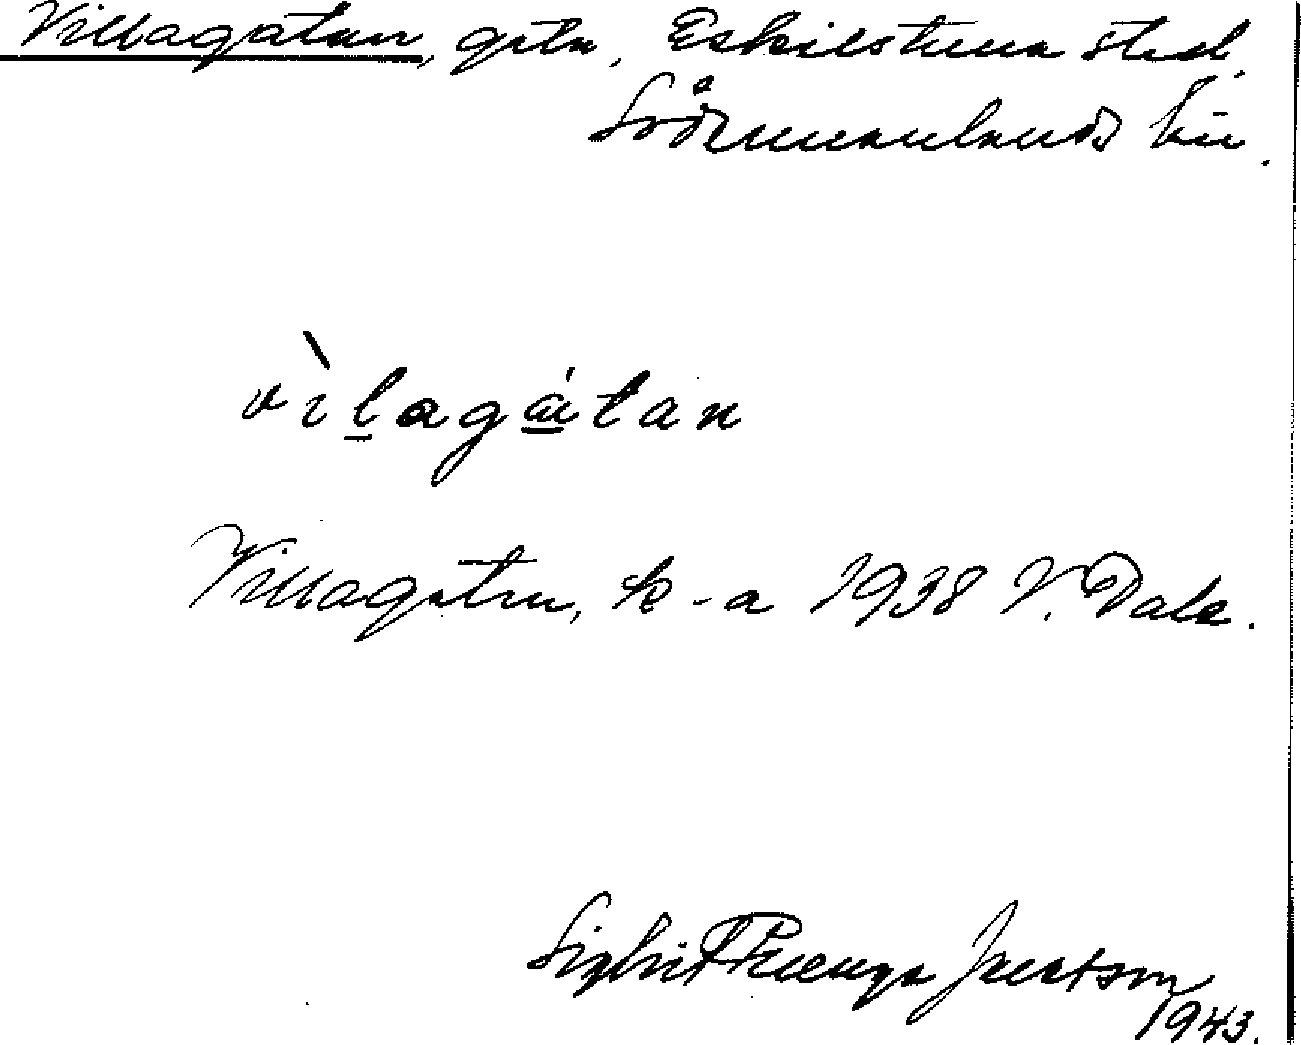 Villagatan, gata, Eskilstuna stad,
Södermanlands län.
vìlagátan
Villagatan, k-a 1938 V. Dala.
Sigbrit Jacobson
1943.